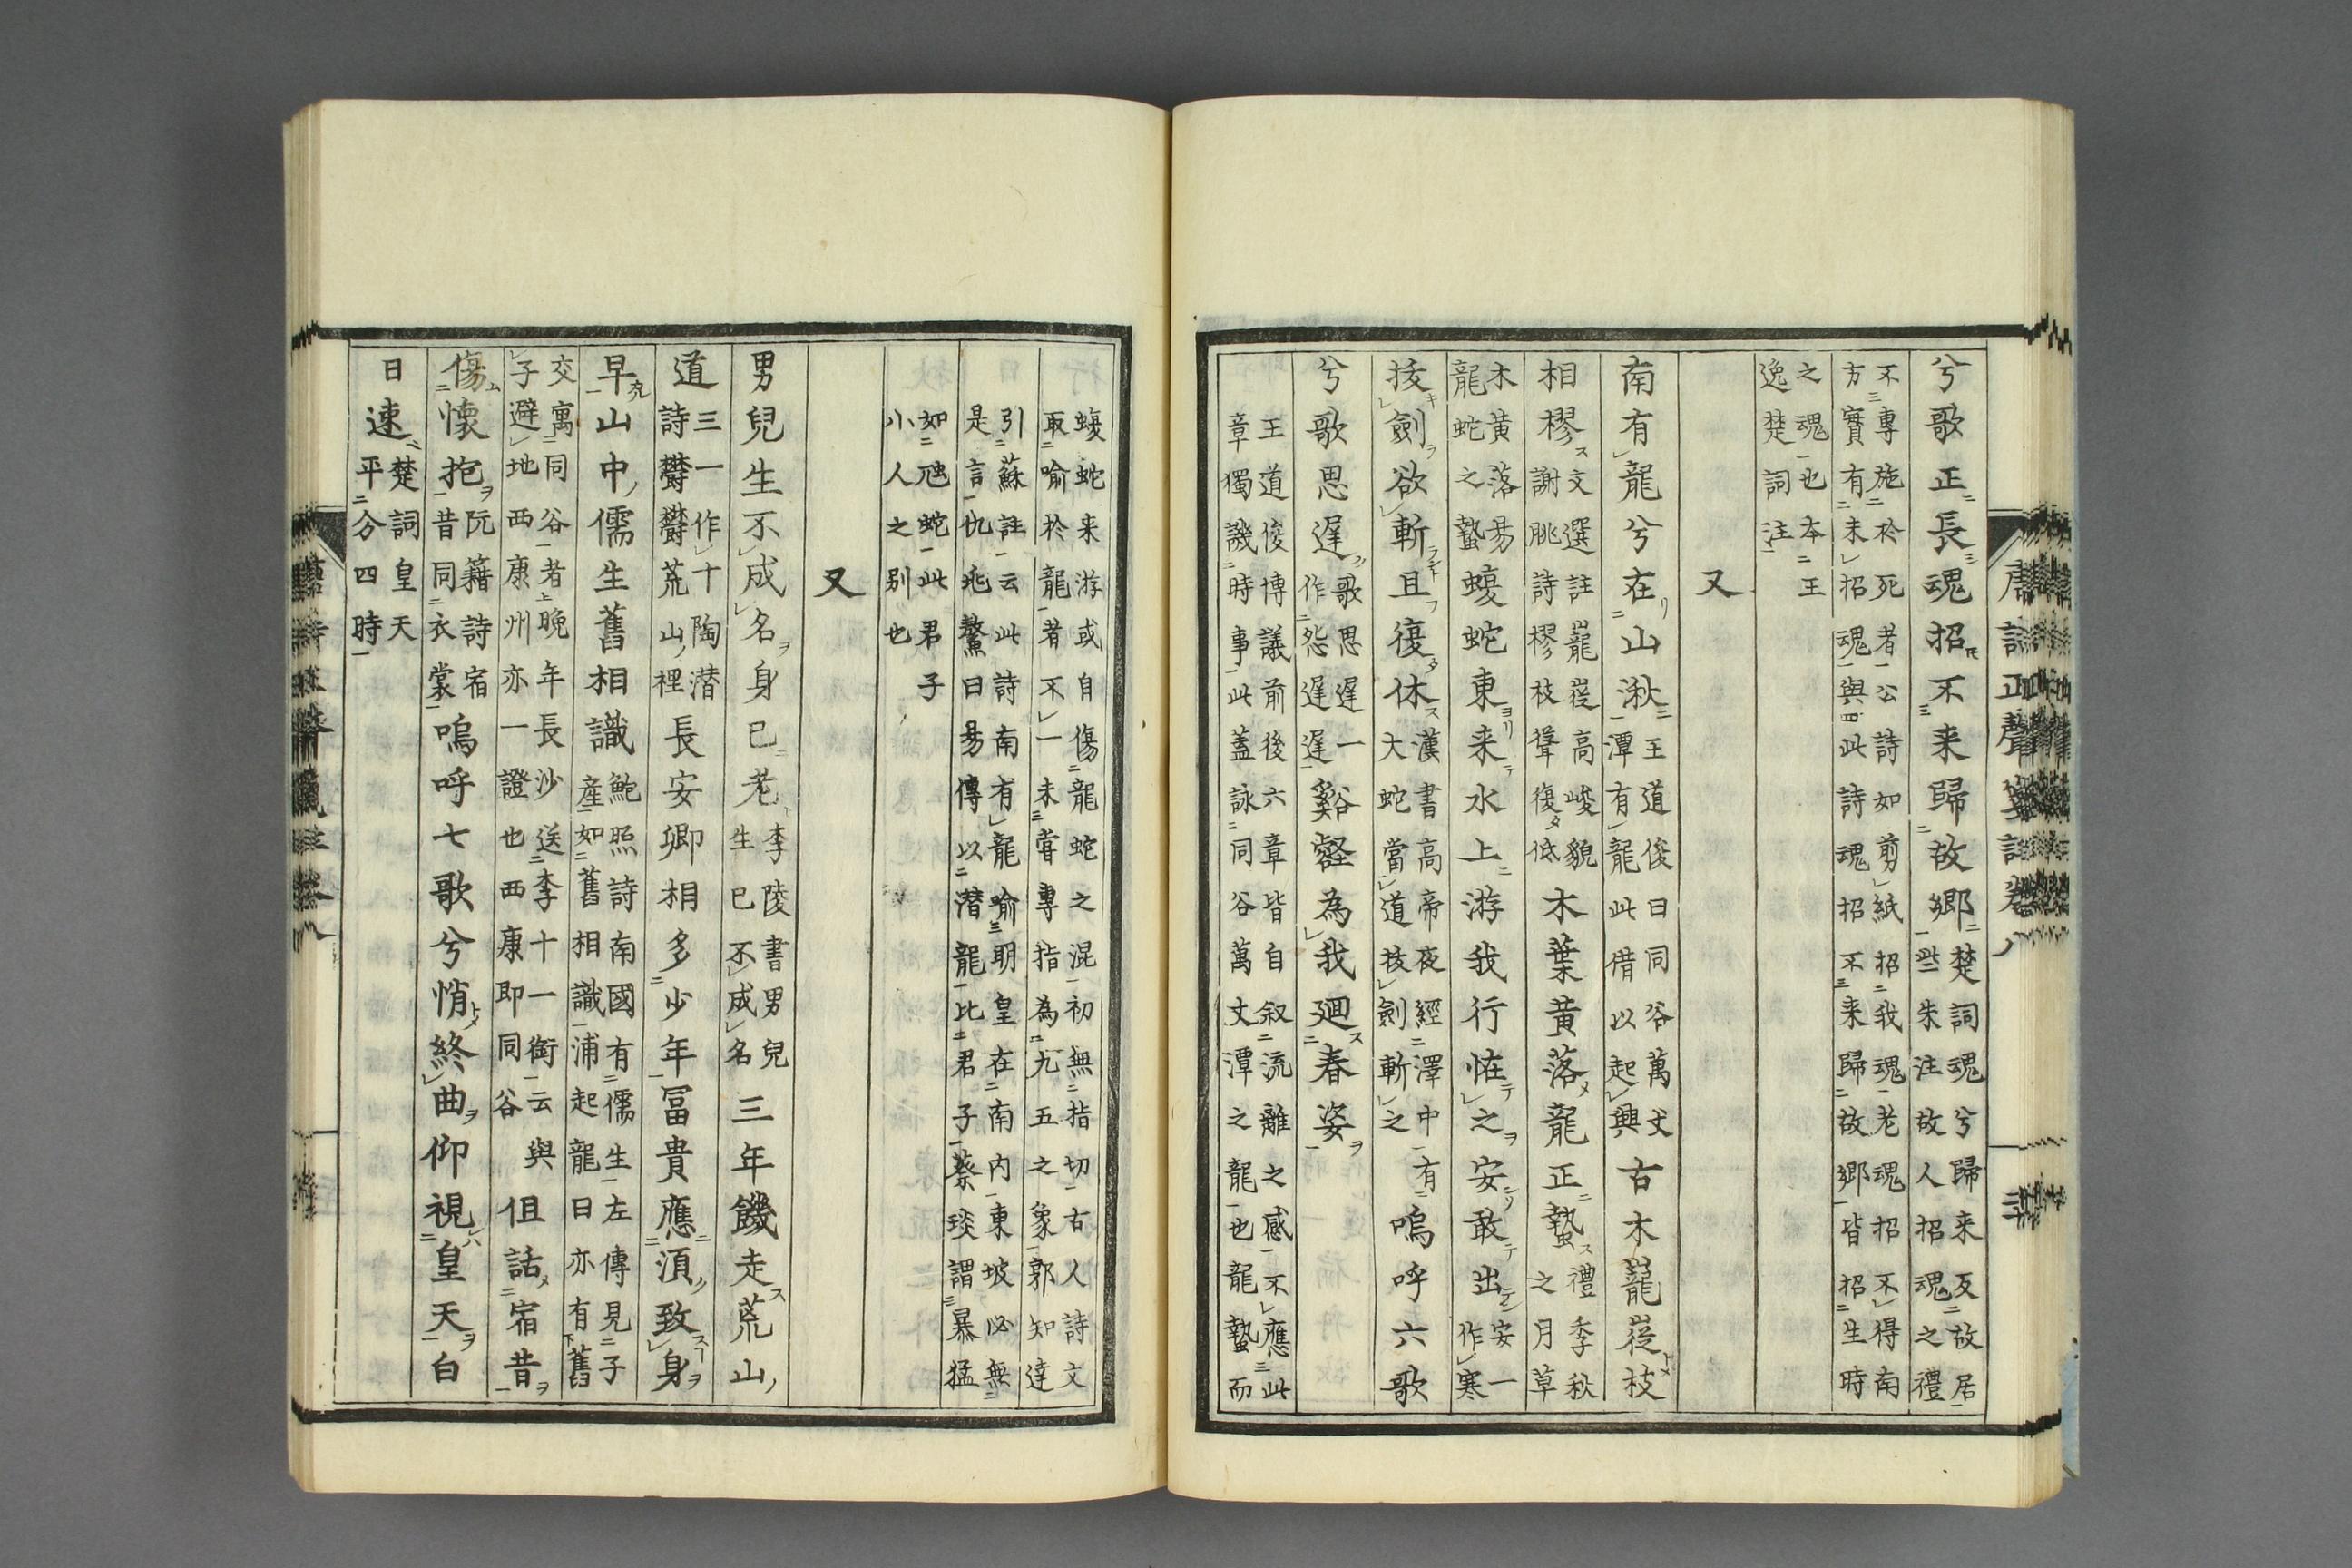 兮歌正長魂招不来歸故鄉楚詞魂兮歸来反故居些朱注故人招魂之禮
不專施於死者公詩如剪紙招我魂老魂招不得南方實有未招魂與此詩魂招不来歸故鄉皆招生時
之魂也本王逸楚詞注
又
南有龍兮在山湫王道俊曰同谷萬丈潭有龍此借以起興古木巃嵸枝
相樛文選註巃嵸高峻貌謝朓詩樛枝聳復低木葉黄落龍正蟄禮季秋之月草
木黄落易龍蛇之蟄蝮蛇東来水上游我行怪之安敢出安一作寒
拔劍欲斬且復休漢書高帝夜經澤中有大蛇當道拔劍斬之嗚呼六歌
兮歌思遲歌思遲一作怨遲遲谿壑為我廻春姿
王道俊博議前後六章皆自叙流離之感不應此章獨譏時事此蓋詠同谷萬丈潭之龍也龍蟄而
蝮蛇来游或自傷龍蛇之混初無指切古人詩文取喻於龍者不一未嘗專指為九五之象郭知達
引蘇註云此詩南有龍喻明皇在南内東坡必無是言仇兆鰲曰易傳以潛龍比君子蔡琰謂暴猛
如虺蛇此君子小人之别也
又
男兒生不成名身已老李陵書男兒生已不成名三年饑走荒山
道三一作十陶潜詩欝欝荒山裡長安卿相多少年冨貴應湏致身
早山中儒生舊相識鮑照詩南國有儒生左傳見子産如舊相識浦起龍曰亦有舊
交寓同谷者晚年長沙送李十一銜云與子避地西康州亦一證也西康即同谷但話宿昔
傷懐抱阮籍詩宿昔同衣裳嗚呼七歌兮悄終曲仰視皇天白
日速楚詞皇天平分四時
唐詩正聲箋註卷八